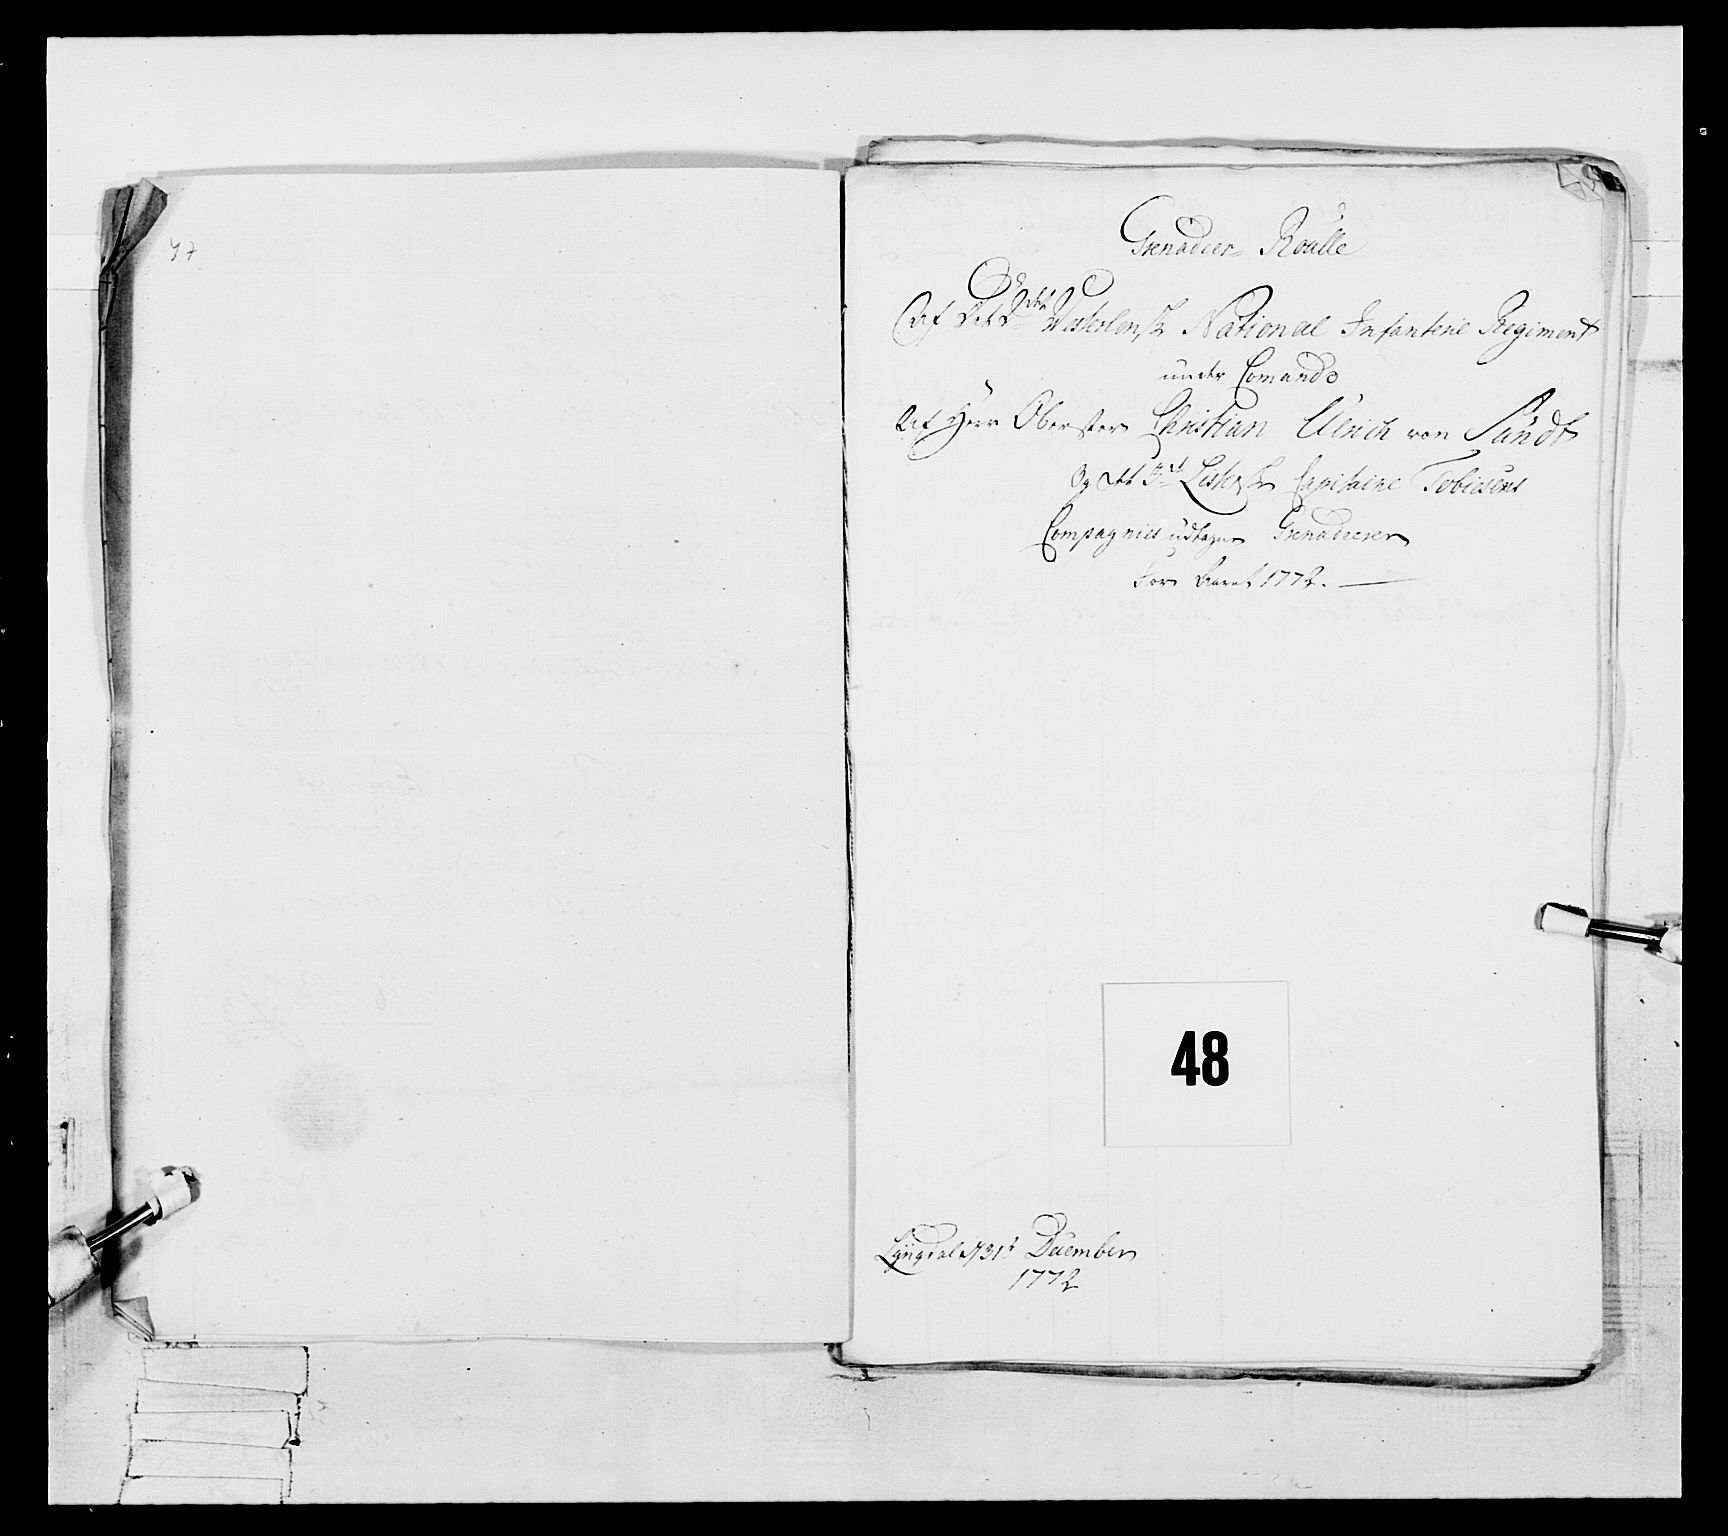 47
Grenadeer Roulle
Af Det 2det Westerlensk National Infanterie Regiment
under Comando
Af Herr Oberster Christian Ulrich von Sündt
Og det 3die Listersk Capitaine Tobiesens
Compagnies udtagne Grenadeerer
For Aaret 1772.
48
Lÿngdal d 31t December
1772